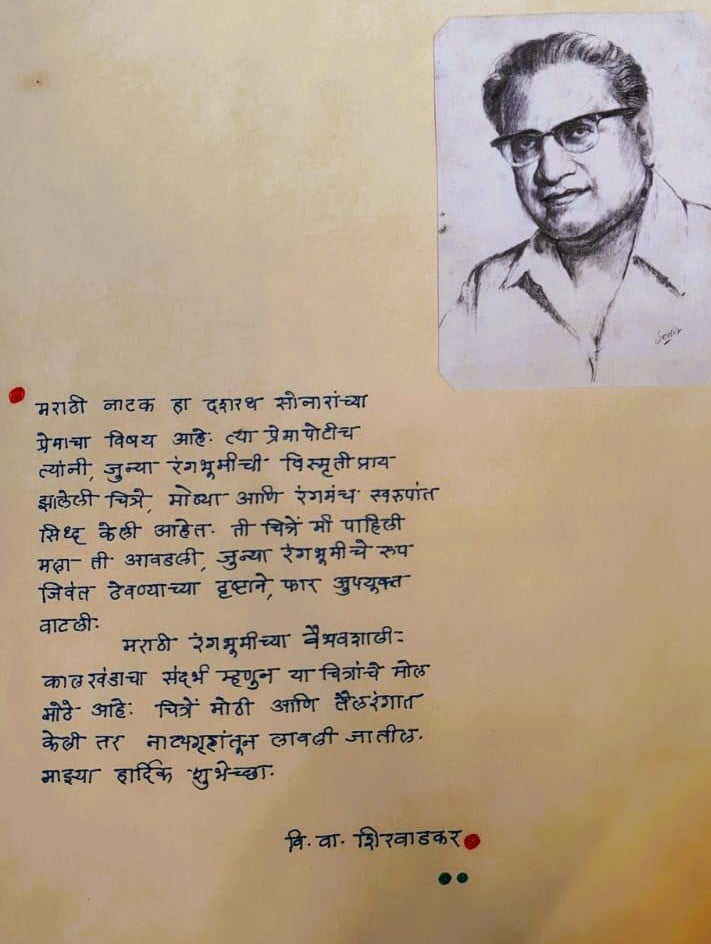 मराठी नाटक हा दशरथ सोनारांच्या
प्रेमाचा विषय आहे. त्या प्रेमापोटीच
त्यांनी, जुन्या रंगभूमीची विस्मृतीप्राय
झालेली चित्रे, मोठ्या आणि रंगमंच स्वरुपांत
सिध्द केली आहेत. ती चित्रें मी पाहिली
मला ती आवडली, जुन्या रंगभूमीचे रुप
जिवंत ठेवण्याच्या दृष्टाने, फार जुपयुक्त
वाटली.
मराठी रंगभूमीच्या वैभवशाली-
कालखंडाचा संदर्भ म्हणुन या चित्रांचे मोल
मोठे आहे. चित्रें मोठी आणि तैलरंगात
केली तर नाट्यगृहांतून लावली जातील.
माझ्या हार्दिक शुभेच्छा.
वि. वा. शिरवाडकर